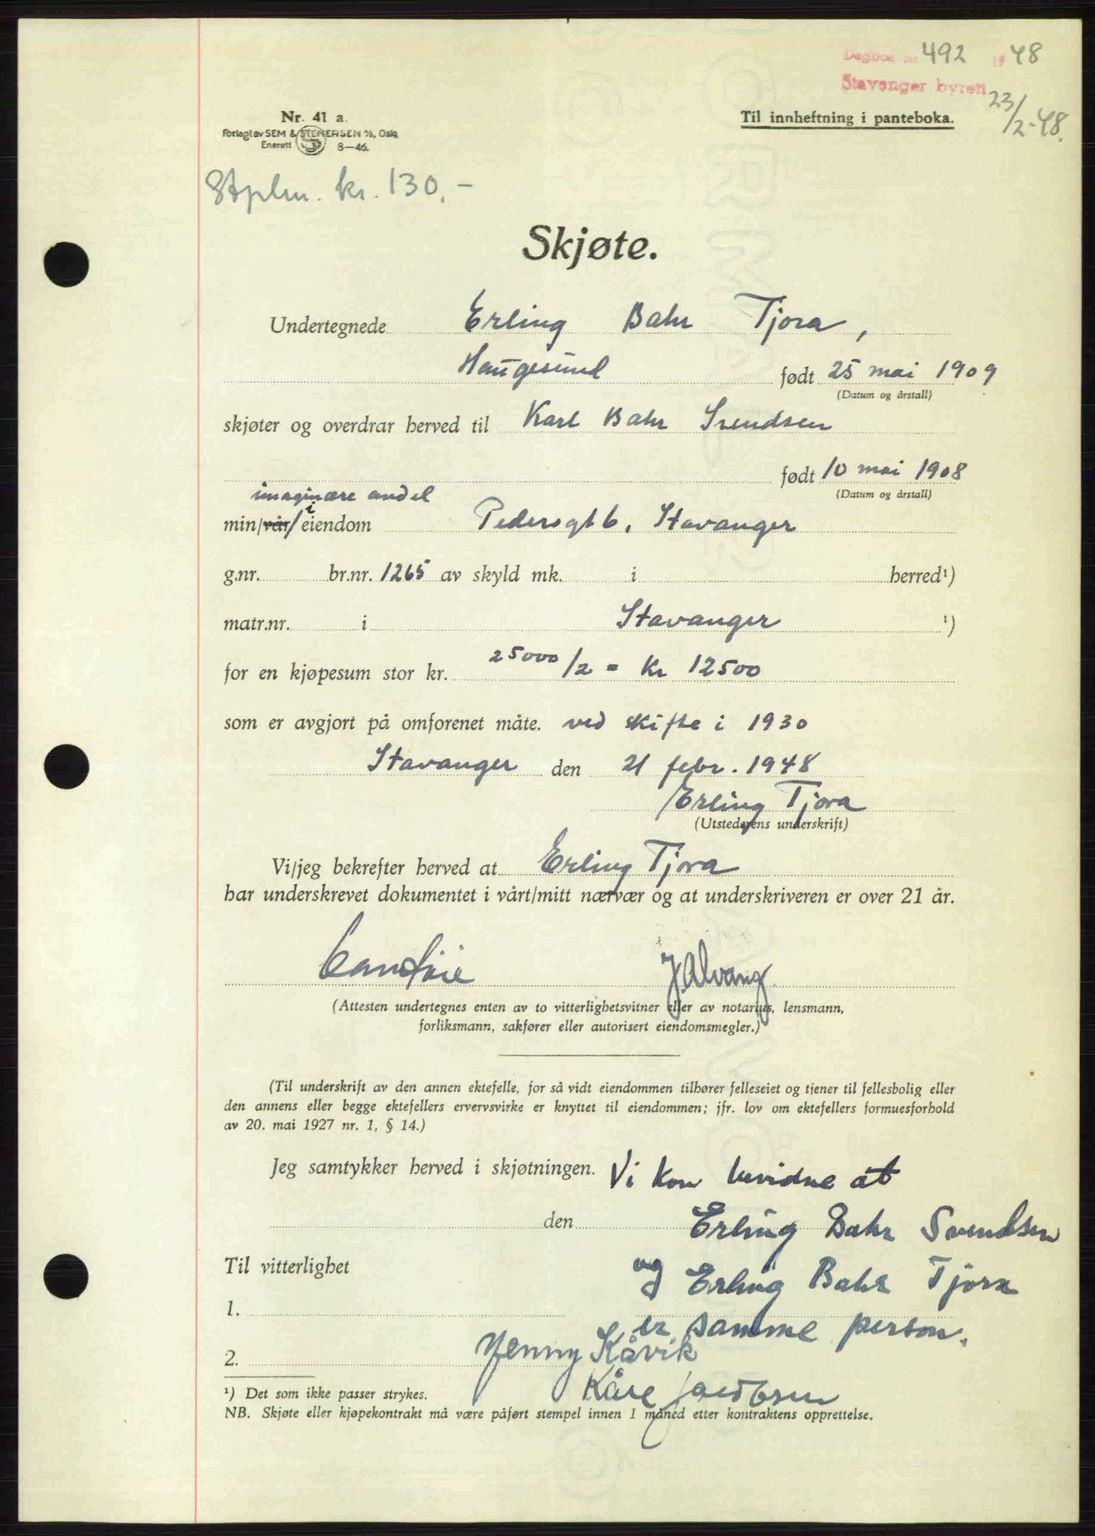 Dagbok nr. 492 19 48
Stavenger byrett
23/2-48.
Nr. 41 a.
Forlagt av SEM & STENERSEN A/S, Oslo
Enerett S 8—46.
Til innheftning i panteboka.
Stplm. kr. 130,-
Skjøte.
Undertegnede Erling Bahr Tjora,
Haugesund født 25 mai 1909
(Datum og årstall)
skjøter og overdrar herved til Karl Bahr Svendsen
født 10 mai 1908
(Datum og årstall)
imaginære andel
min/vår/ i eiendom Pedersgt 6, Stavanger
g.nr. br.nr. 1265 av skyld mk. i herred¹)
matr.nr. i Stavanger ¹)
for en kjøpesum stor kr. 25000/2 = Kr 12500
som er avgjort på omforenet måte. ved skifte i 1930
Stavanger den 21 febr. 1948
Erling Tjora
(Utstederens underskrift)
Vi/jeg bekrefter herved at Erling Tjora
har underskrevet dokumentet i vårt/mitt nærvær og at underskriveren er over 21 år.
J. Alvang
(Attesten undertegnes enten av to vitterlighetsvitner eller av notarius, lensmann,
forliksmann, sakfører eller autorisert eiendomsmegler.)
(Til underskrift av den annen ektefelle, for så vidt eiendommen tilhører felleseiet og tjener til fellesbolig eller
den annens eller begge ektefellers ervervsvirke er knyttet til eiendommen; jfr. lov om ektefellers formuesforhold
av 20. mai 1927 nr. 1, § 14.)
Jeg samtykker herved i skjøtningen. Vi kan bevidne at
den Erling Bahr Svendsen
Til vitterlighet og Erling Bahr Tjora
1.
er samme person.
2. Jenny Kåvik
Kåre Jacobsen
¹) Det som ikke passer strykes.
NB. Skjøte eller kjøpekontrakt må være påført stempel innen 1 måned etter kontraktens opprettelse.